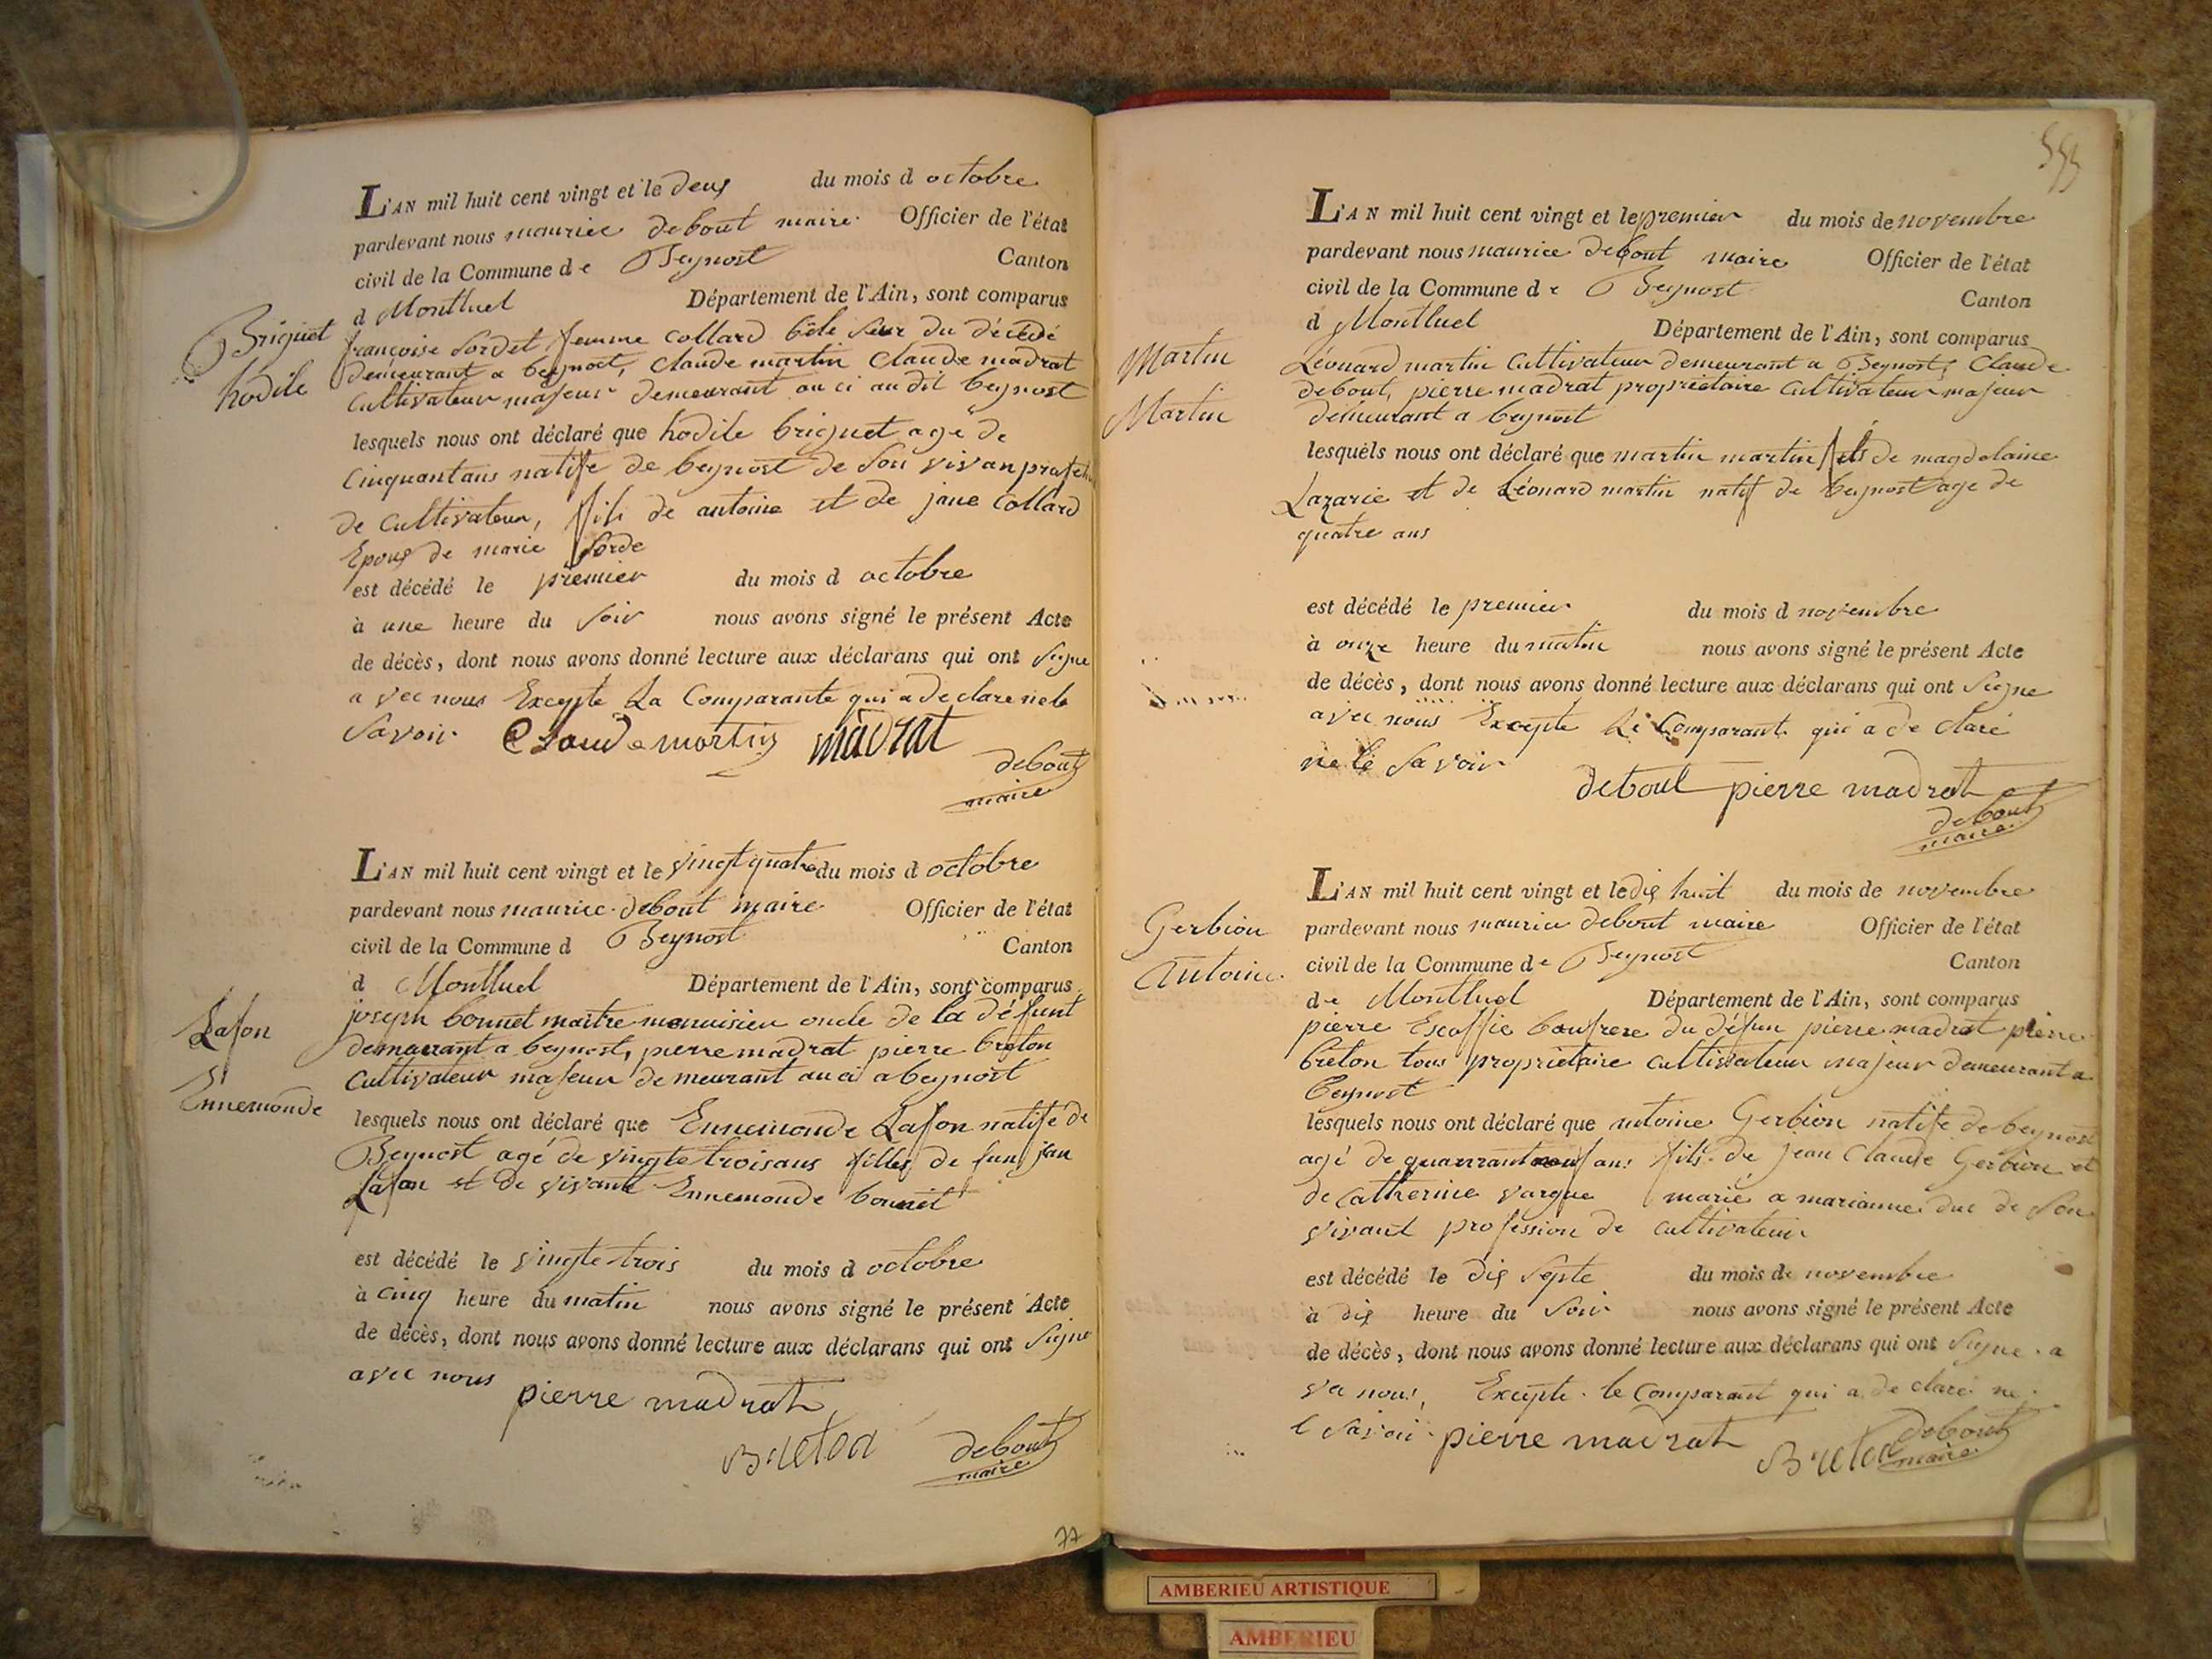 Briguet
hodile
L'AN mil huit cent vingt et le deux du mois d octobre
pardevant nous maurice debout maire Officier de l'état
civil de la Commune de Beynost Canton
d Montluel Département de l'Ain, sont comparus
françoise Sordet femme collard bele seur du décédé
demeurant a beynost, claude martin claude madrat
cultivateur majeur demeurant au ci au dit beynost
lesquels nous ont déclaré que hodile briguet agé de
cinquant ans natife de beynost de son vivan
de cultivateur, fils de antoine et de jane collard
Epoux de marie Sorde
est décédé le premier du mois d octobre
à une heure du soir nous avons signé le présent Acte
de décès, dont nous avons donné lecture aux déclarans qui ont signe
a vec nous Excepte La Comparante qui a de clare ne le
savoir Claude martin madrat
debout
maire
Lafon
Ennemonde
L'AN mil huit cent vingt et le vingt quatre du mois d octobre
pardevant nous maurice debout maire Officier de l'état
civil de la Commune d Beynost Canton
d Montluel Département de l'Ain, sont comparus
joseph bonnet maitre menuisieu oncle de la défunt
demeurant a beynost, pierre madrat pierre breton
cultivateur majeur demeurant au ci a beynost
lesquels nous ont déclaré que Ennemonde Lafon natife de
Beynost agé de vingte trois ans filles de fun jean
Lafon et de vivante Ennemonde bonnet
est décédé le vingte trois du mois d octobre
à cinq heure du matin nous avons signé le présent Acte
de décès, dont nous avons donné lecture aux déclarans qui ont signe
avec nous pierre madrat
Breton debout
maire
77
Martin
Martin
L'AN mil huit cent vingt et le premier du mois de novembre
pardevant nous maurice debout maire Officier de l'état
civil de la Commune de Beynost Canton
d Montluel Département de l'Ain, sont comparus
Léonard martin cultivateur demeurant a Beynost, Claude
debout, pierre madrat propriétaire cultivateur majeur
demeurant a beynost
lesquels nous ont déclaré que martin martin fils de magdelaine
Lazarie et de Léonard martin natif de beynost age de
quatre ans
est décédé le premier du mois d novembre
à onze heure du matin nous avons signé le présent Acte
de décès, dont nous avons donné lecture aux déclarans qui ont signe
avec nous Excepte Le Comparant qui a de claré
ne le sa voir
debout pierre madrat
debout
maire
Gerbion
Antoine
L'AN mil huit cent vingt et le dix huit du mois de novembre
pardevant nous maurice debout maire Officier de l'état
civil de la Commune de Beynost Canton
de Montluel Département de l'Ain, sont comparus
pierre Escoffie boufrere du défun pierre madrat pierre
breton tous propriétaire cultivateur majeur demeurant a
beynost
lesquels nous ont déclaré que antoine Gerbion natife de beynost
agé de ans fils de jean Claude Gerbion et
de catherine vargue marié a marianne duc de son
vivant profession de cultivateur
est décédé le dix septe du mois de novembre
à dix heure du soir nous avons signé le présent Acte
de décès, dont nous avons donné lecture aux déclarans qui ont signe . a
vec nous, Excepte le Comparant qui a de claré ne
le savoir pierre madrat Breton debout
maire
AMBERIEU ARTISTIQUE
AMBERIEU